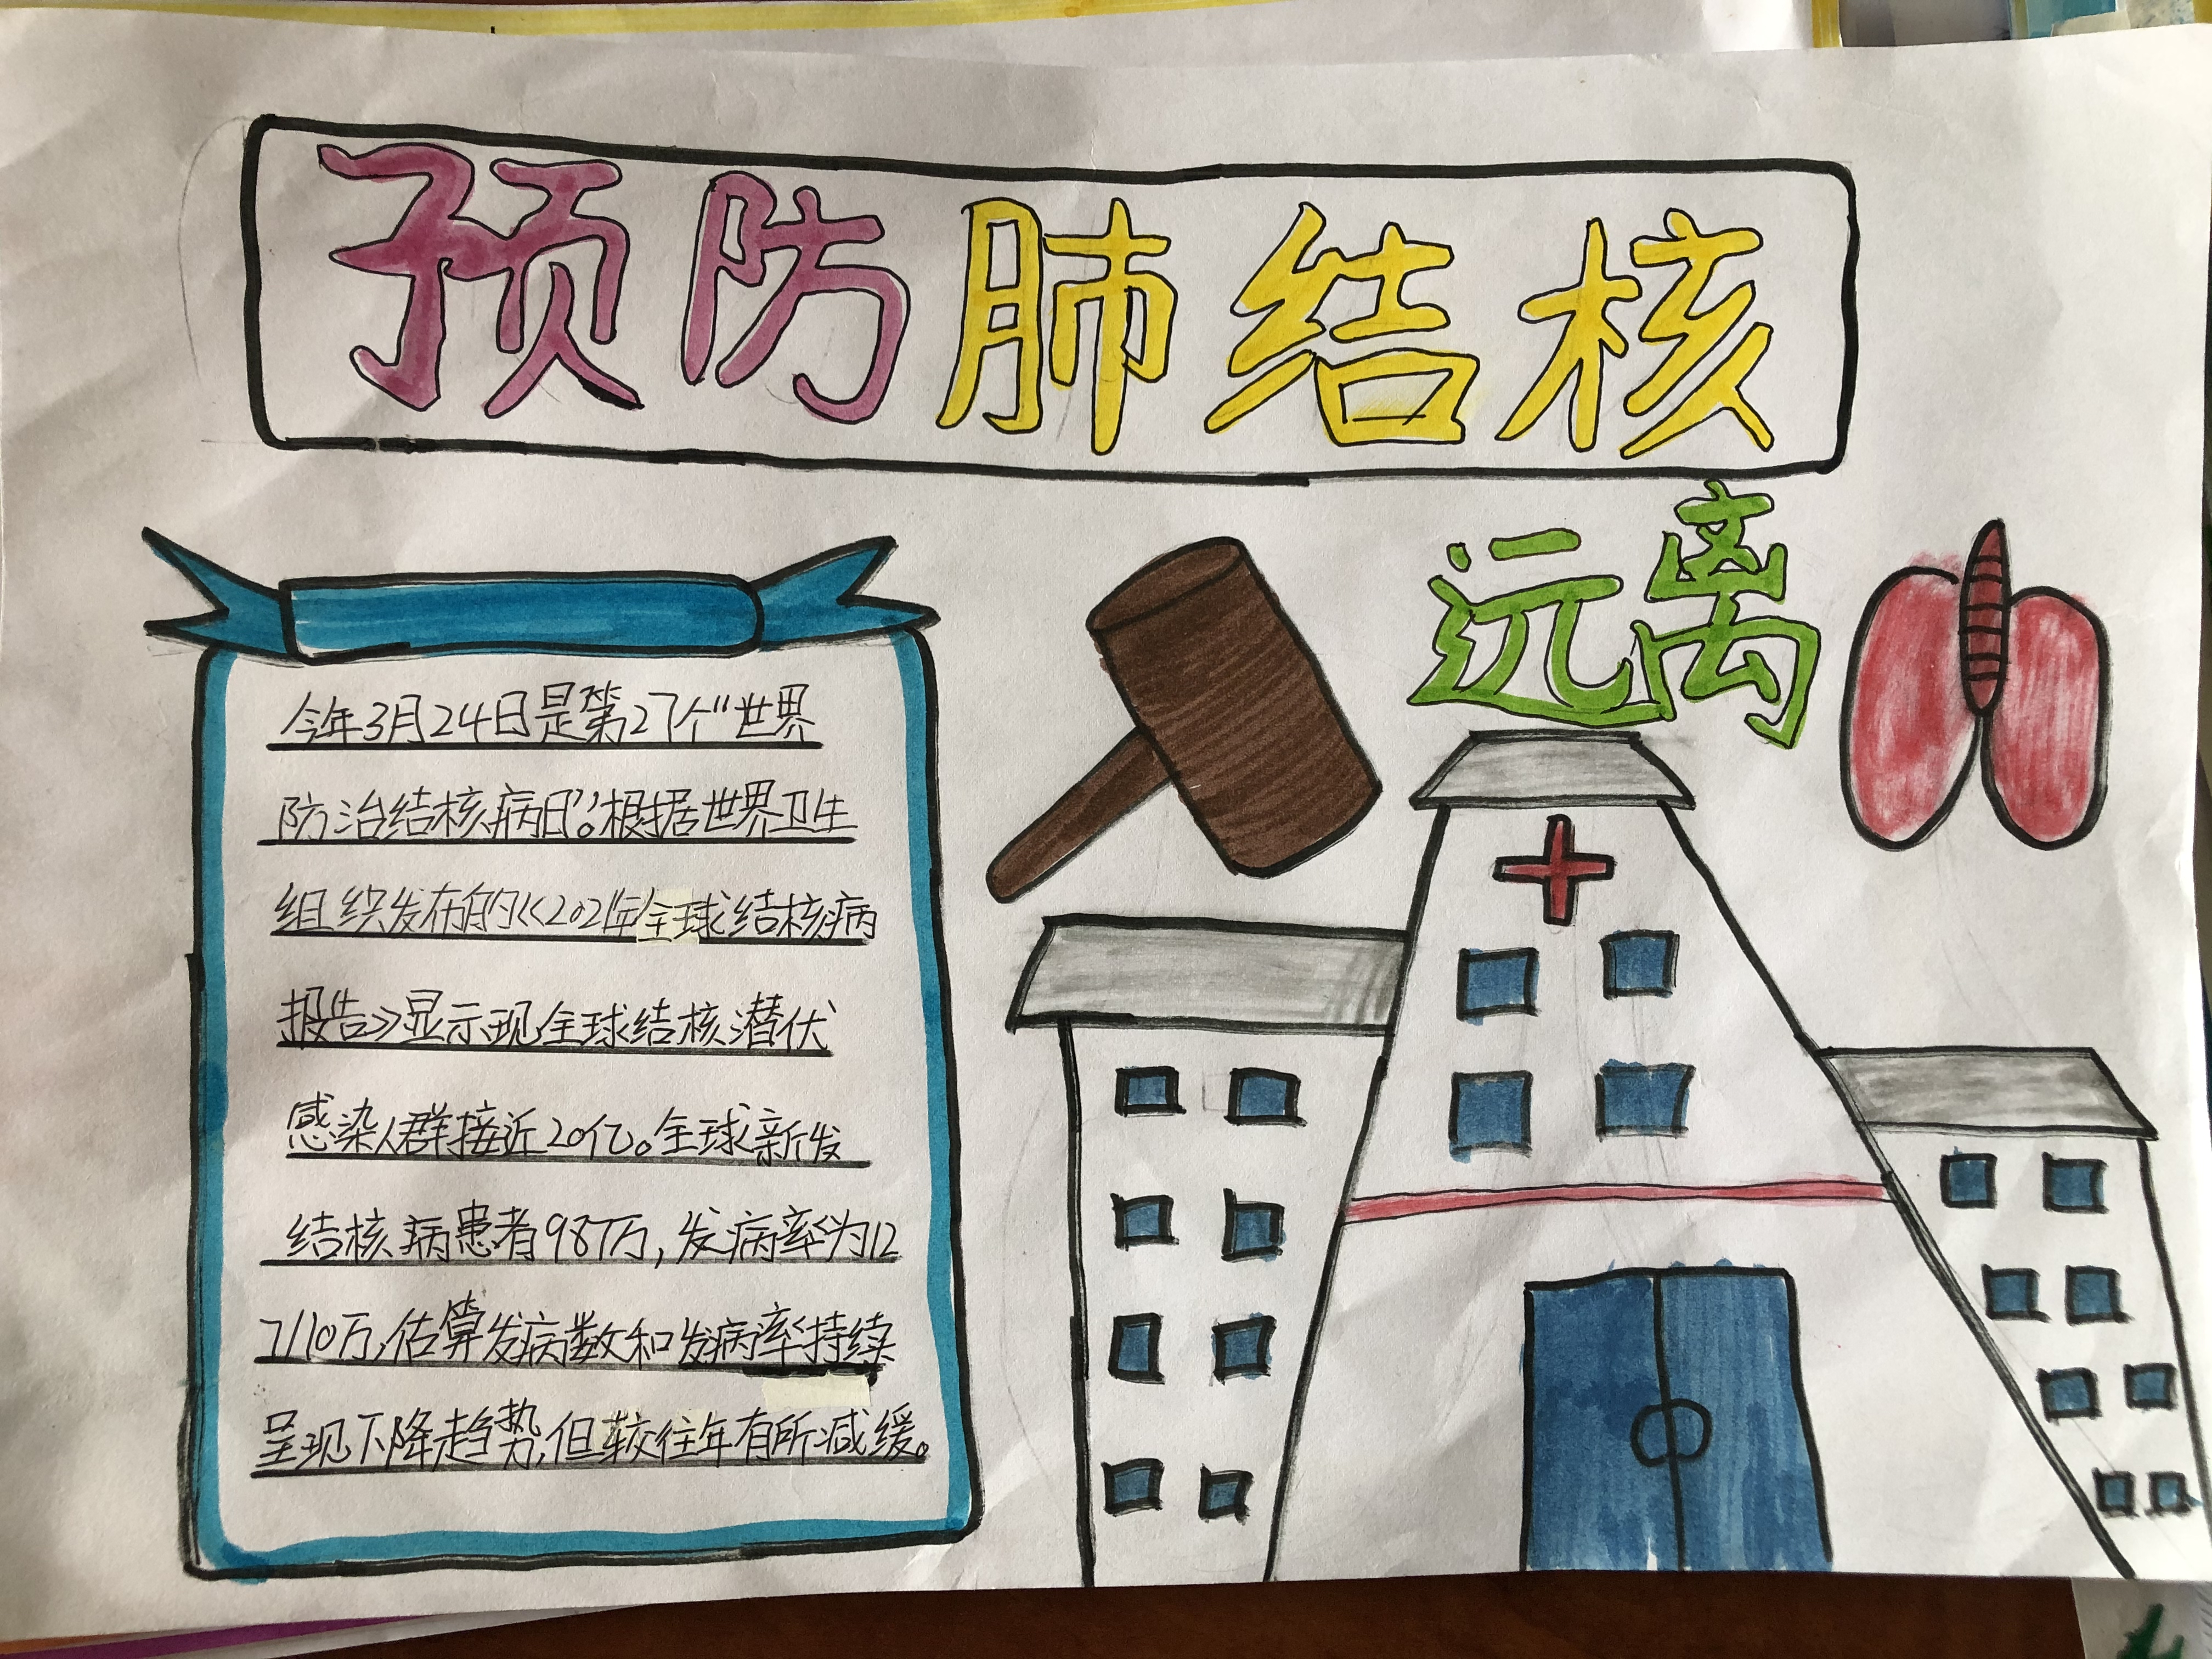 预防肺结核
远离
今年3月24日是第27个“世界
防治结核病日”。根据世界卫生
组织发布的《2021年全球结核病
报告》显示现全球结核潜伏
感染人群接近20亿。全球新发
结核病患者987万，发病率为12
7/10万，估算发病数和发病率持续
呈现下降趋势，但较往年有所减缓。